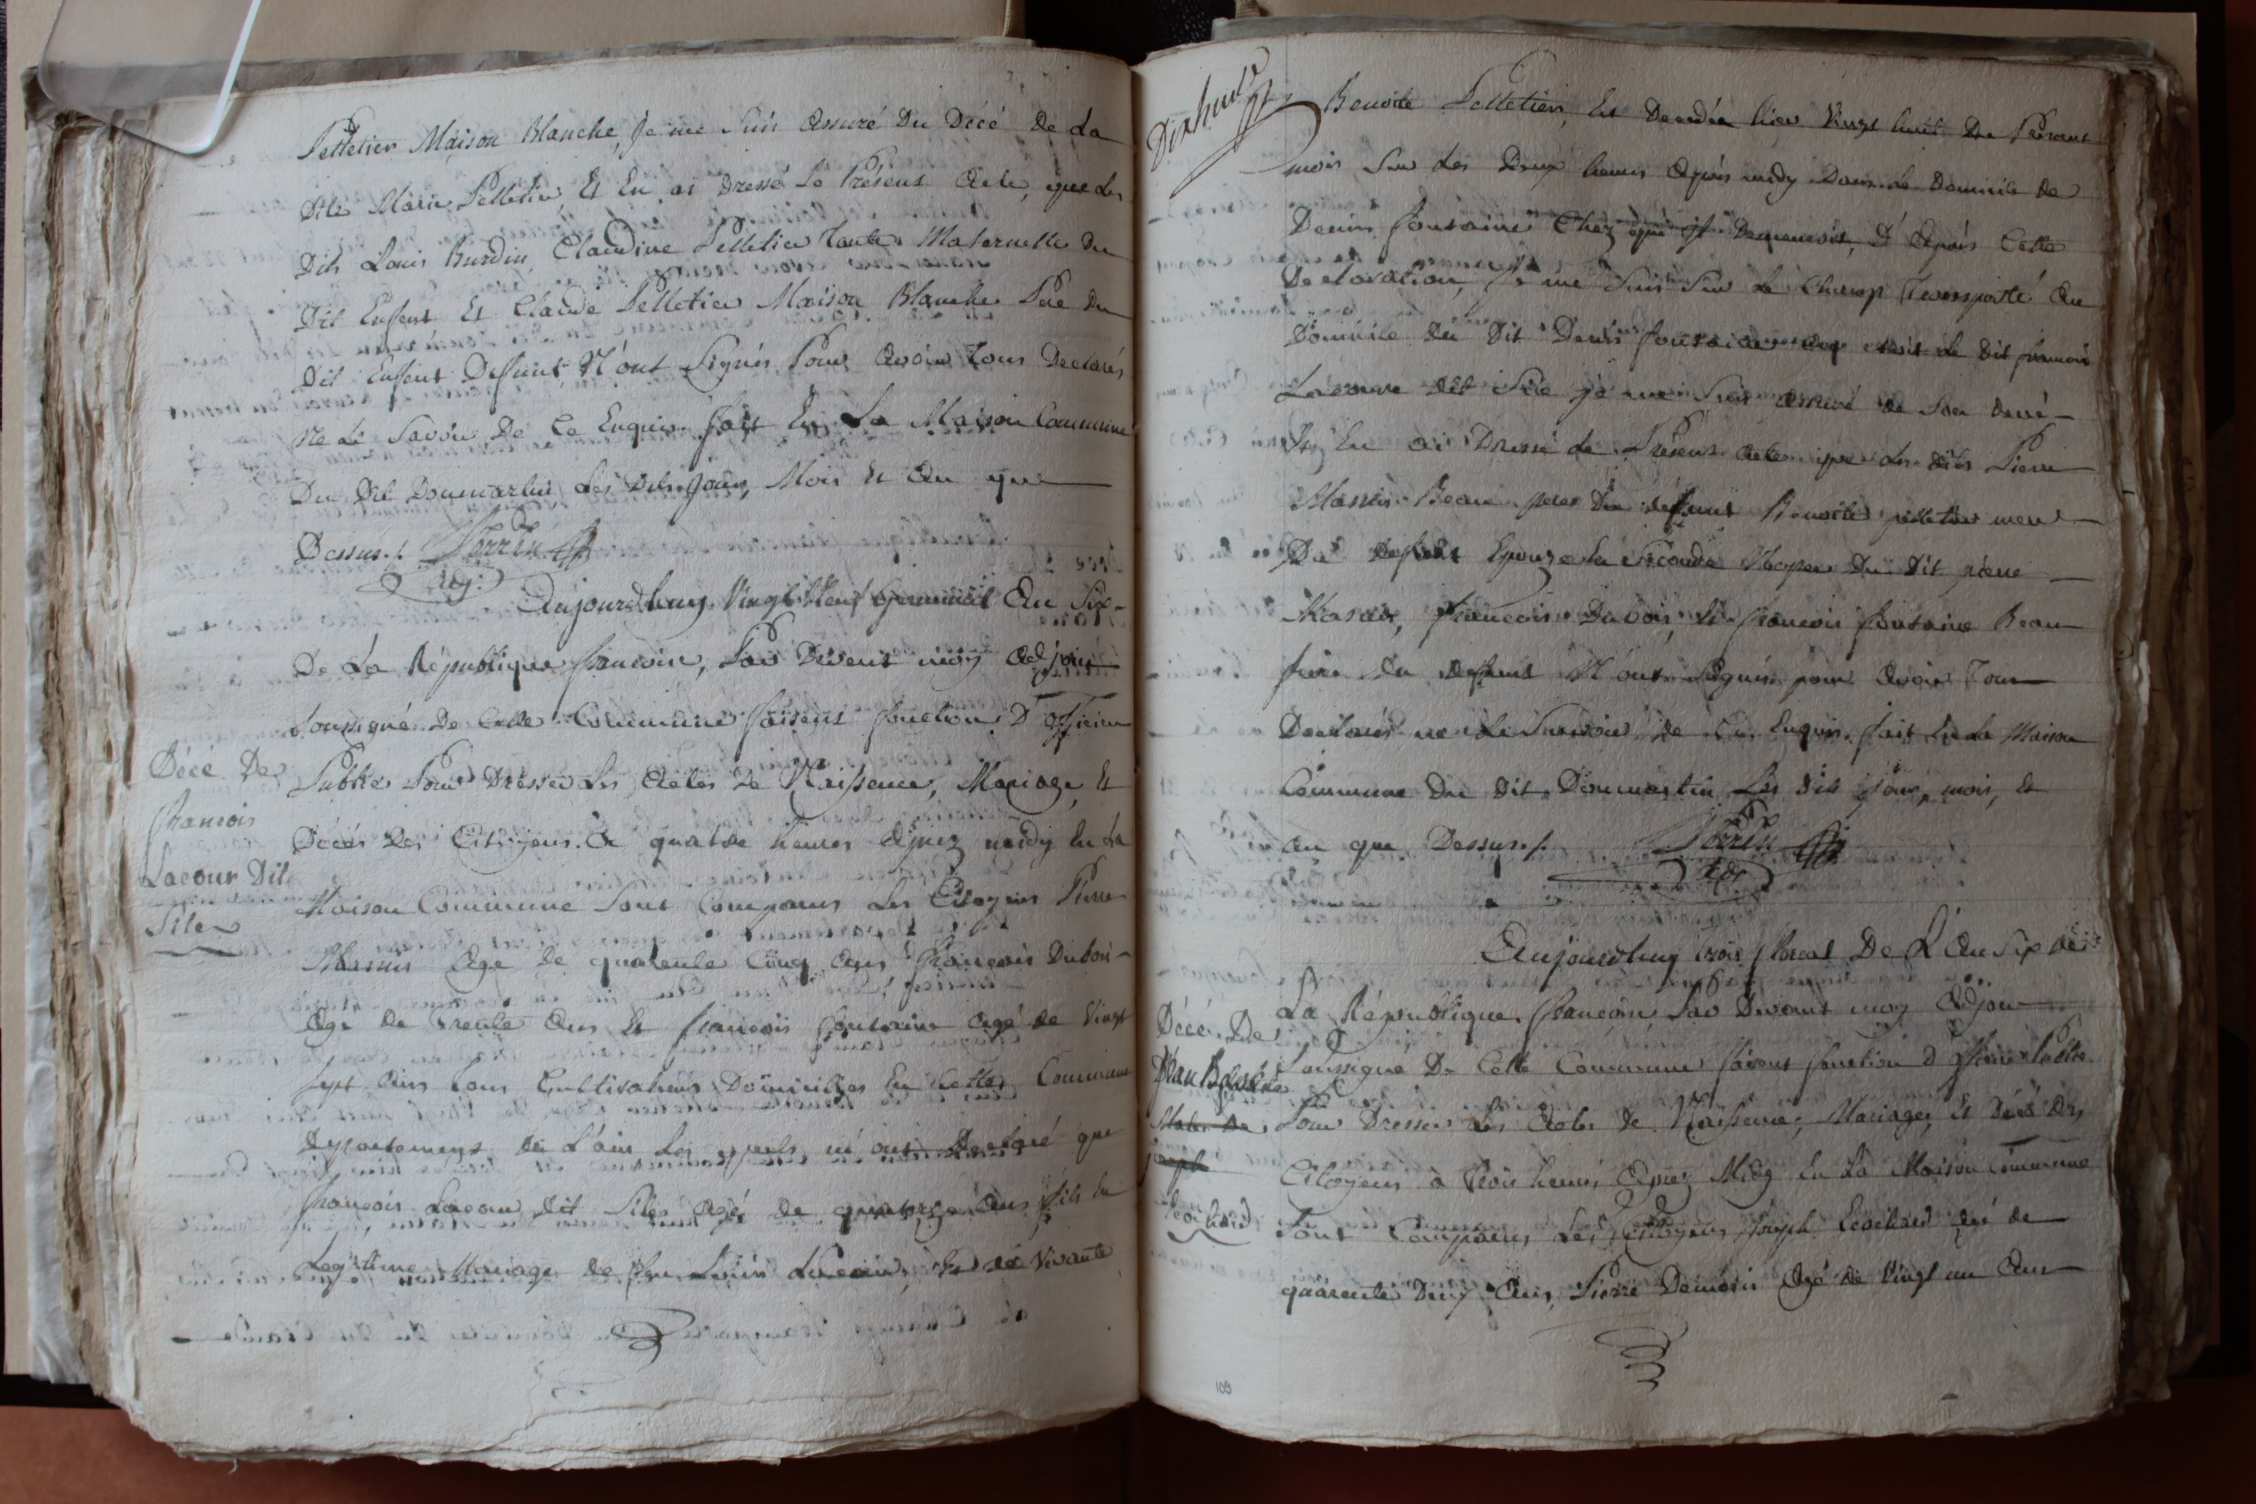 Pelletier Maison Blanche, Je me suis assuré du Décé de la
dite Marie Pelletier, Et En ai dressé le Présent acte, que Les
Dits Louis Burdin, Claudine Pelletier tante Maternelle du
Dit Enfent Et Claude Pelletier Maison Blanche Pere du
Dit Enfent Defunt N'ont Signés Pour avoir tous Declarés
Ne Le Savoir De Ce Enquis. fait En La Maison Commune
Du Dit Dommartin Les Dits Jour, Mois Et an que
Dessus./.
adj:
Aujourdhuy Vingt Neuf Germinal an Six
De La République francoise, Par Devent moy adjoint
Soussigné De Cette Commune faisent fonction D'officier
Public Pour Dresser Les actes de Naissence, Mariage, Et
Décés Des Citoyens. à quatre heures apres midy En La
Maison Commune Sont Comparus Les Citoyens Pierre
age de quarente Cinq ans francois Duboi
age de trente ans Et francois fontaine agé de Vingt
Sept ans tous Cultivateurs Domiciliés En Cette Commune
Departement de L'ain Les quels m'ont Declaré que
francois Lacour dit Site agé de quatorze ans fils En
Legitime Mariage de feu Louis Lacour, Et de Vivante
Décé De
francois
Lacour Dit
Site
Dixhuit
Benoite Pelletier, Est Decedée hier Vingt huit Du Présent
mois Sur Les Deux heures après midy Dans Le Domicile de
Denis fontaine Chez qui il Demeuroit, D'après Cette
Declaration, Je me Suis Sur Le Champ transporté au
Domicile du Dit Denis fontaine ou etoit Le Dit francois
Lacour dit Site je me Suis assuré de Son Decé
Et En ai Dressé Le Présent acte que Les dits Pierre
Beau pere du defunt Benoite pelletier mere
Du Defunt Epouze En Seconde Noces Du Dit pierre
francois Dubois, Et francois fontaine Beau
frere du deffunt N'ont Signés pour avoir Tous
Declarés ne Le Savoir de Ce Enquis. fait En La Maison
Commune du dit Dommartin Les dits Jour, mois, Et
an que Dessus./.
adj
Aujourdhuy trois floreal De L'an Six de
La République francoise Par Devant moy adjoin
Soussigné De Cette Commune faisent fonction d'officier Public
Pour Dresser Les actes de Naissence, Mariage, Et Décés Des
Citoyens à trois heures apres Midy En La Maison Commune
Sont Comparus Les Citoyens Joseph Leochard agé de
quarente Deux ans, Pierre Agé de Vingt un ans
Décé De
Jean
joseph
Leochard
109